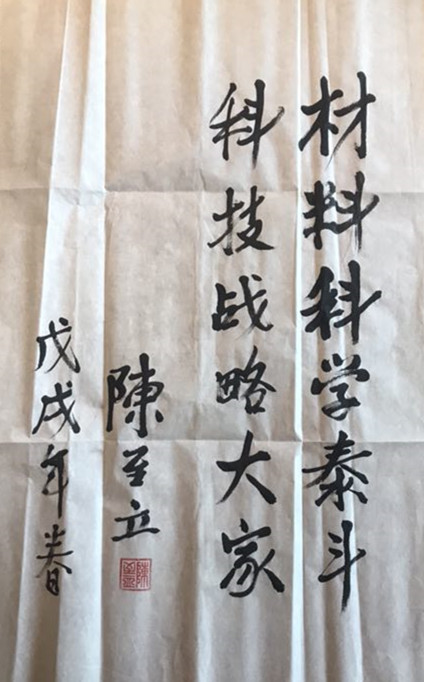 材料科学泰斗
科技战略大家
陳至立
戊戌年春